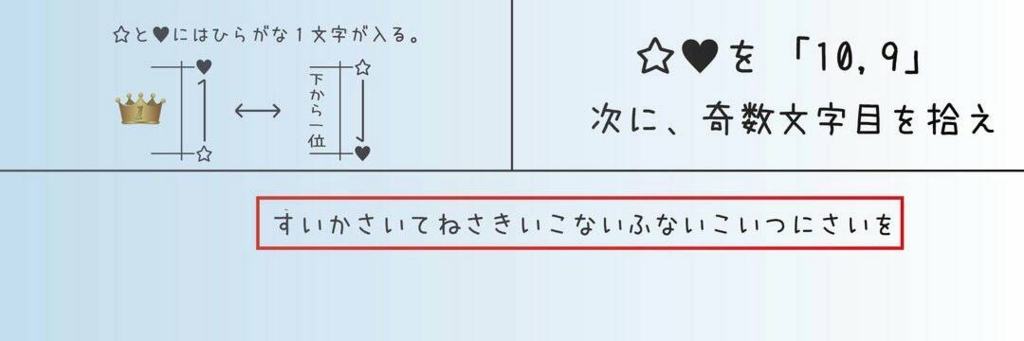 ☆と♥にはひらがな1文字が入る。
♥
☆
1
下から一位
☆
♥
☆♥を「10,9」
次に、奇数文字目を拾え
すいかさいてねさきいこないふないこいつにさいを